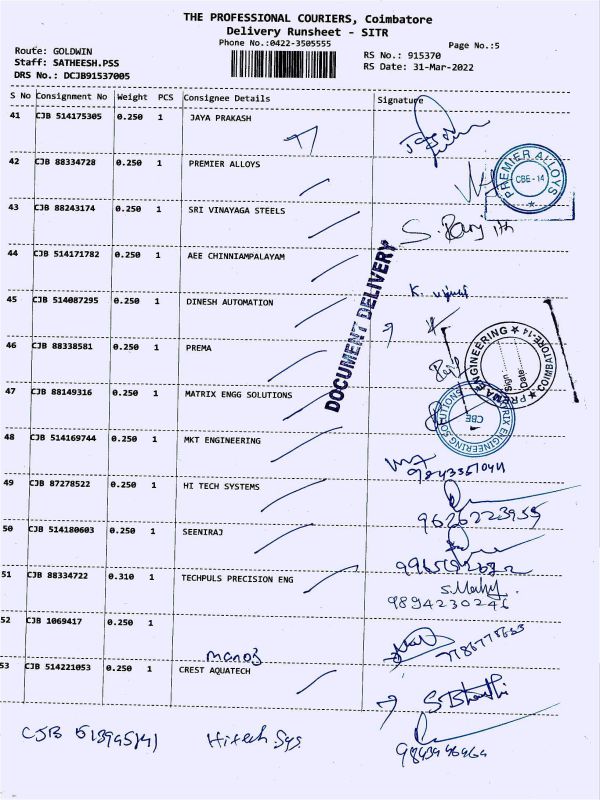 THE PROFESSIONAL COURIERS, Coimbatore
Delivery Runsheet - SITR
Phone No.:0422-3505555
Page No.:5
Route: GOLDWIN
Staff: SATHEESH.PSS
DRS No.: DCJB91537005
RS No.: 915370
RS Date: 31-Mar-2022
S No Consignment No Weight PCS Consignee Details Signature
41 CJB 514175305 0.250 1 JAYA PRAKASH
42 CJB 88334728 0.250 1 PREMIER ALLOYS
PREMIER ALLOYS CBE-14
43 CJB 88243174 0.250 1 SRI VINAYAGA STEELS
44 CJB 514171782 0.250 1 AEE CHINNIAMPALAYAM
DOCUMENT DELIVERY
45 CJB 514087295 0.250 1 DINESH AUTOMATION
46 CJB 88338581 0.250 1 PREMA
PREMA ENGINEERING COIMBATORE-14 Sign Date
47 CJB 88149316 0.250 1 MATRIX ENGG SOLUTIONS
MATRIX ENGINEERING SOLUTIONS CBE
48 CJB 514169744 0.250 1 MKT ENGINEERING
49 CJB 87278522 0.250 1 HI TECH SYSTEMS
9626223955
50 CJB 514180603 0.250 1 SEENIRAJ
51 CJB 88334722 0.310 1 TECHPULS PRECISION ENG
9894230246
52 CJB 1069417 0.250 1
manoj
53 CJB 514221053 0.250 1 CREST AQUATECH
Hitech Sys